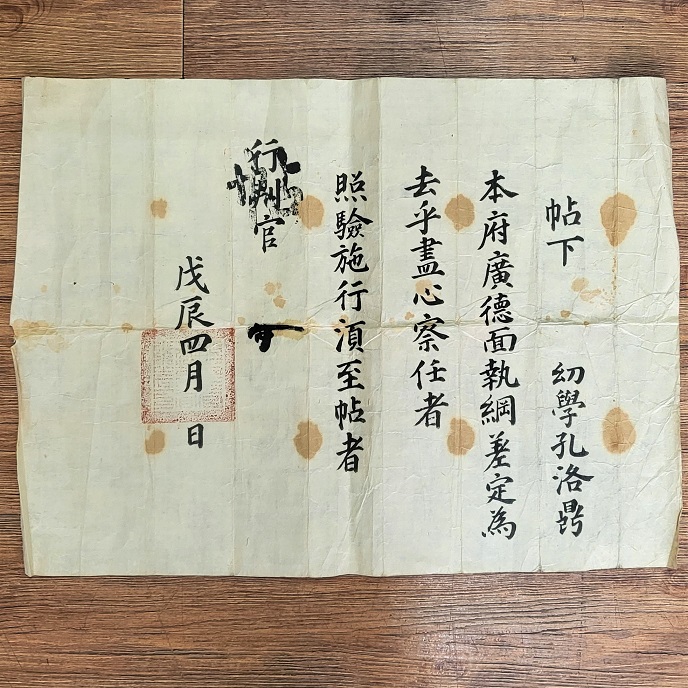 帖下　幼學孔洛鼎
本府廣德面執綱差定為
去乎盡心察任者
照驗施行湏至帖者
行州官
戊辰四月　日